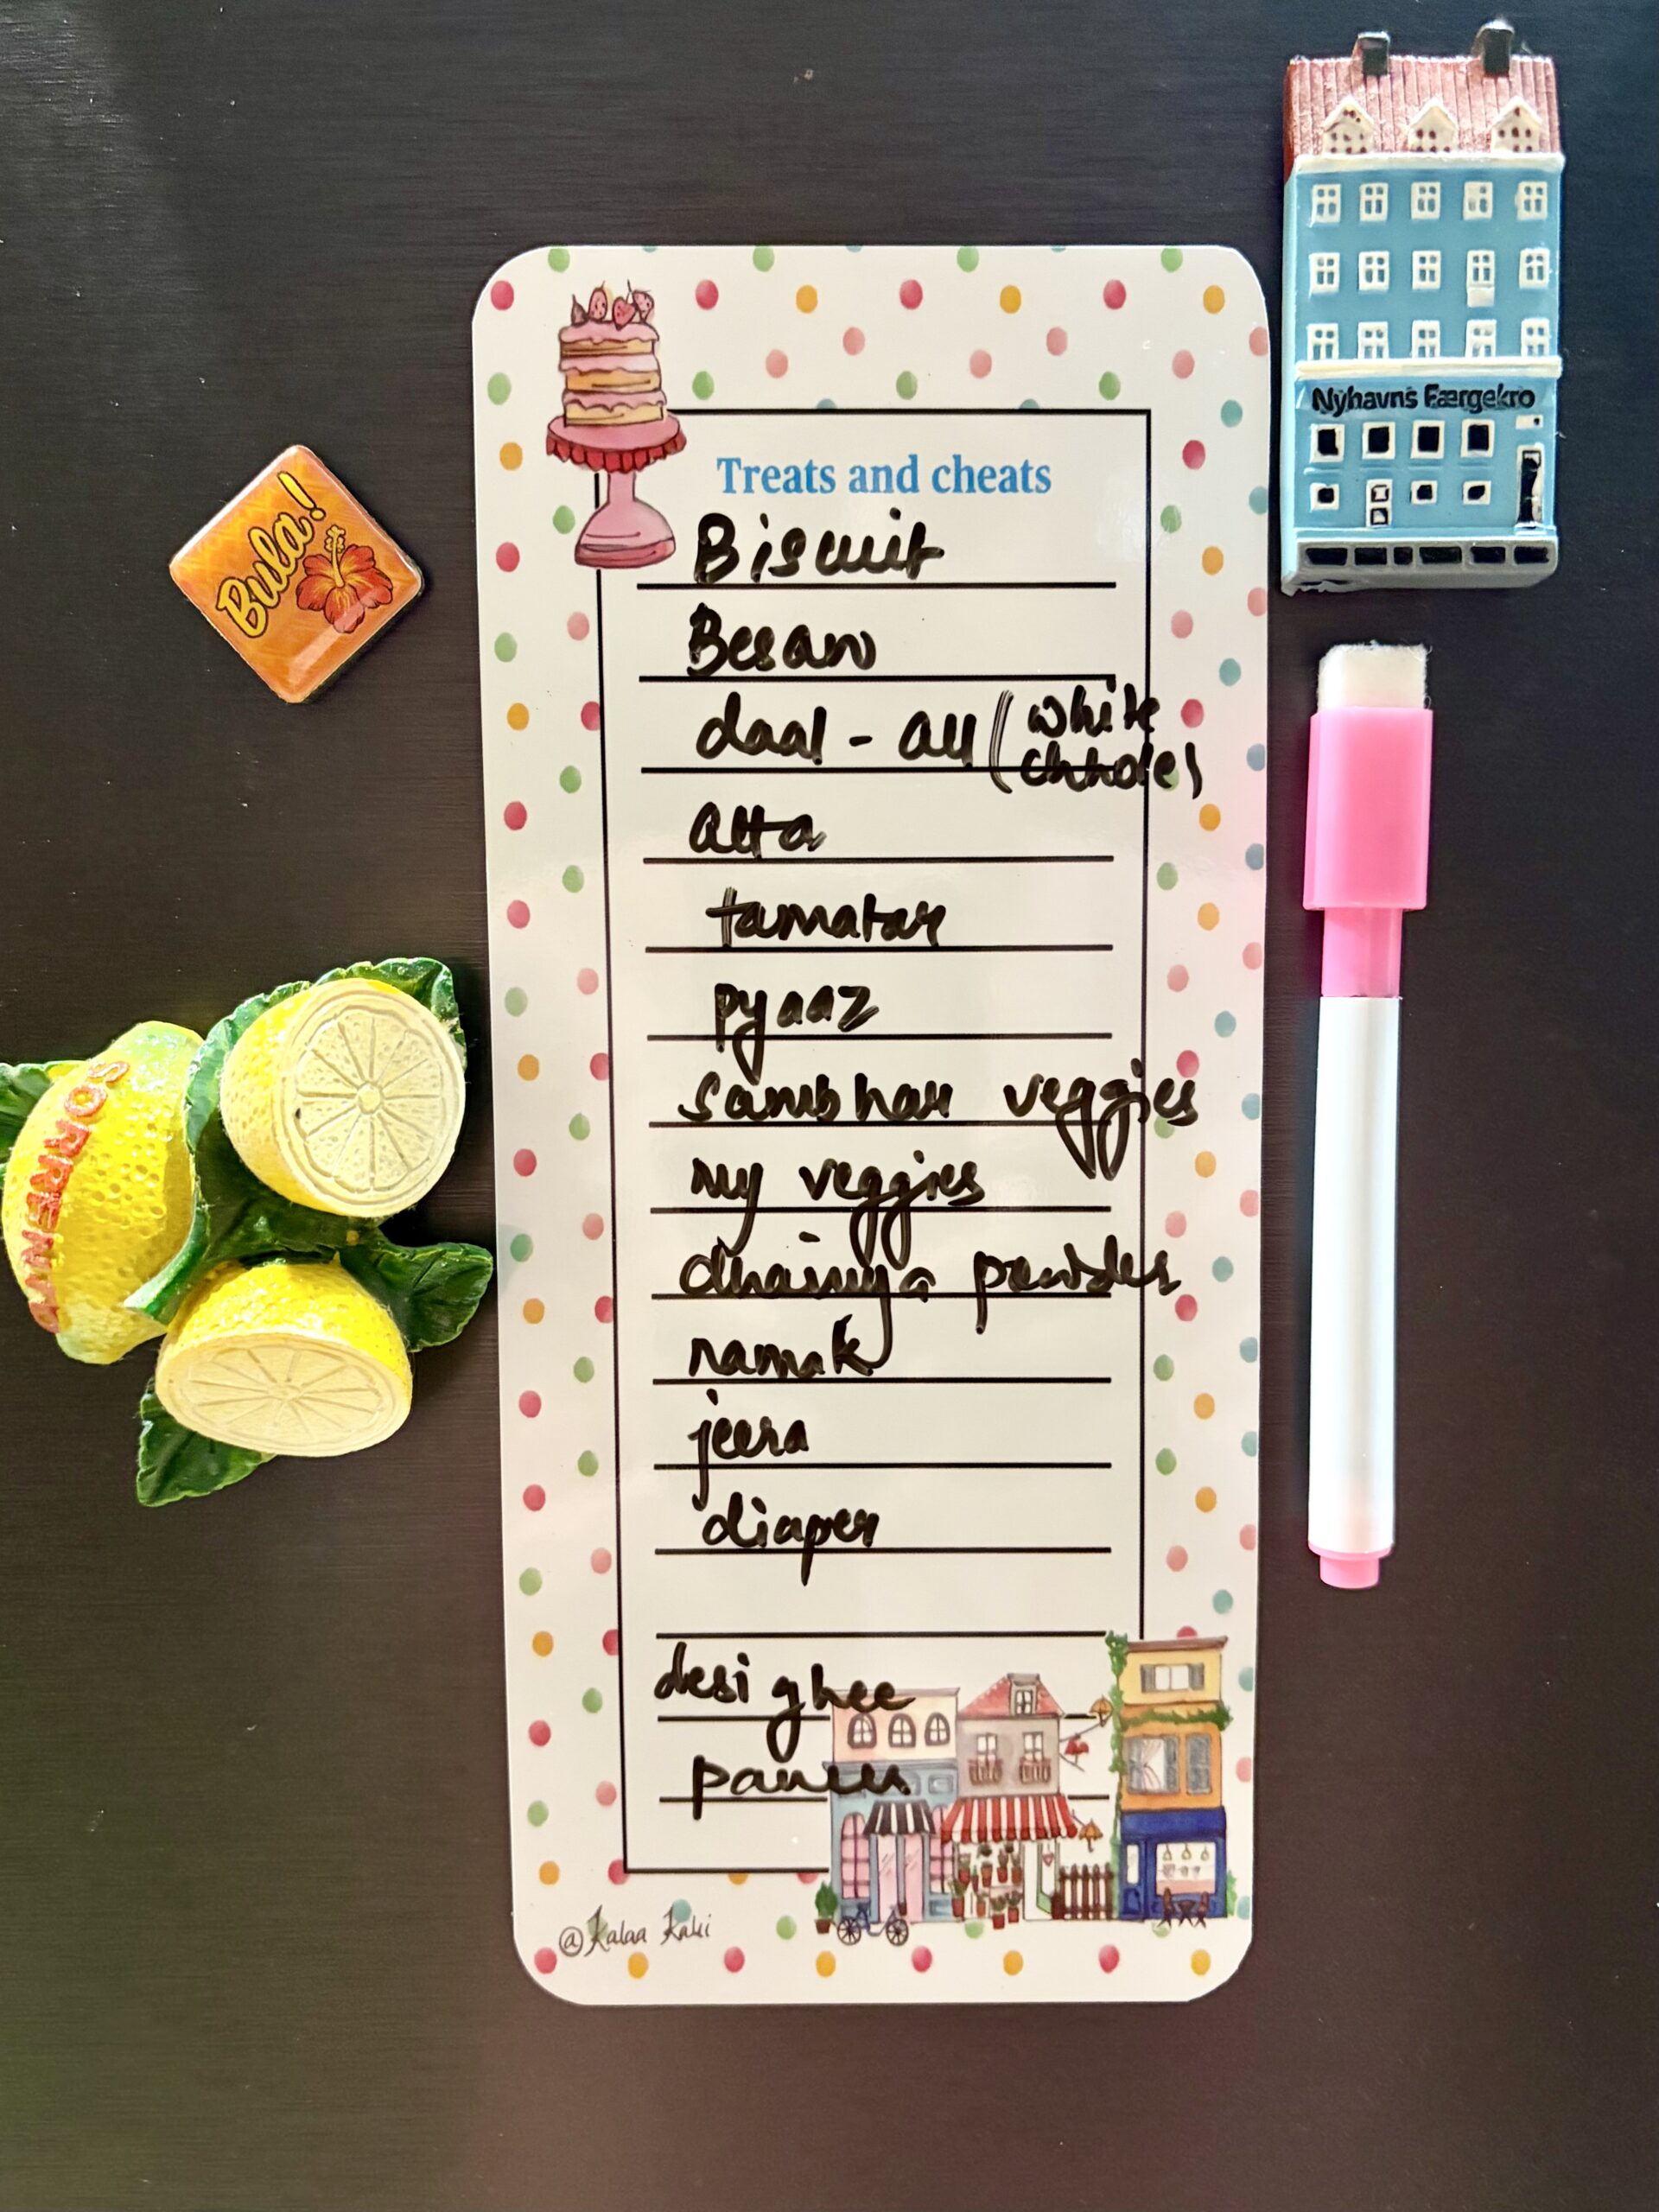 Nyhavns Færgekro
Treats and cheats
Bula!
Biscuit
Besan
daal - all (white
chhole)
atta
tamatar
pyaaz
sambhar veggies
my veggies
SORRENTO
dhaniya powder
namak
jeera
diaper
desi ghee
paneer
@Kalaa Kaki